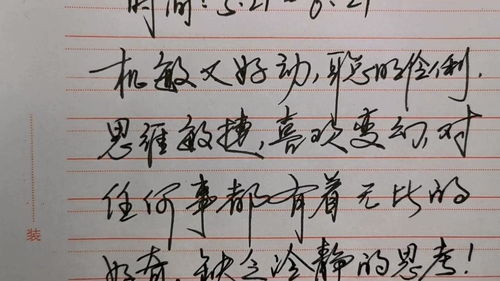 时间:5.21－6.21
机敏又好动,聪明伶俐.
思维敏捷,喜欢变幻,对
任何事都有着无比的
好奇,缺乏冷静的思考!
装